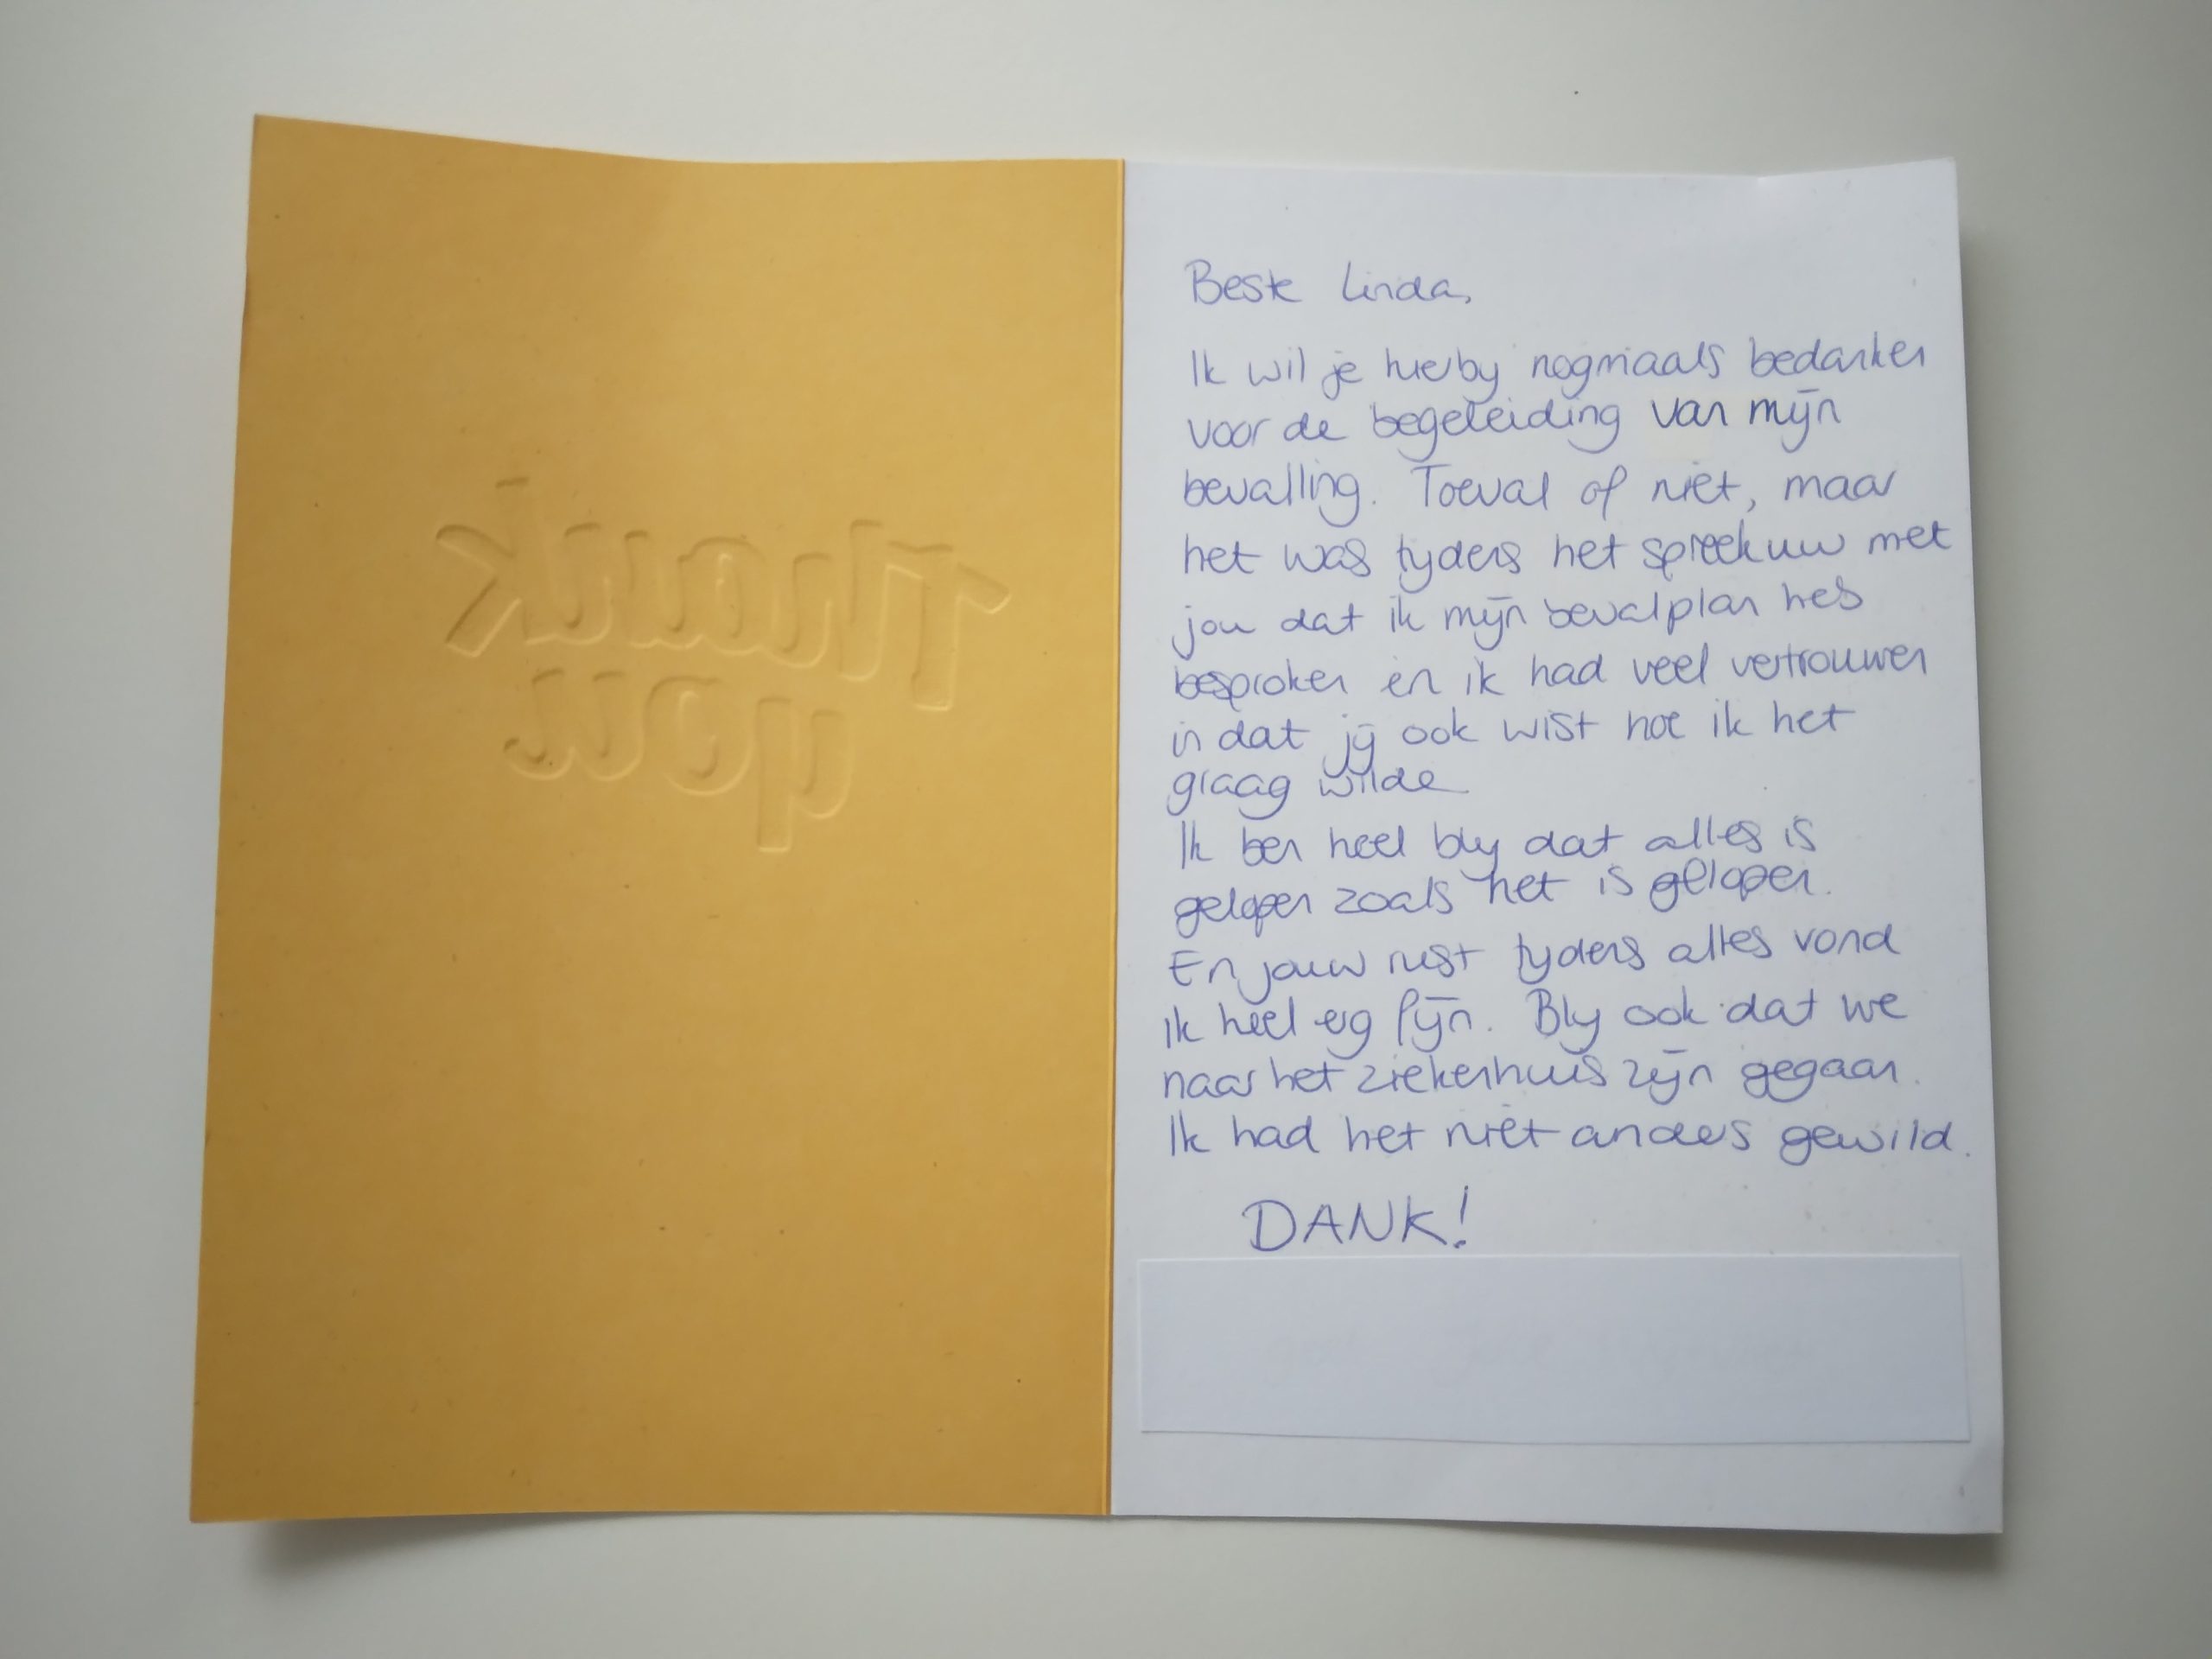 Thank
you
Beste Linda,
Ik wil je hierbij nogmaals bedanken
voor de begeleiding van mijn
bevalling. Toeval of niet, maar
het was tijdens het spreekuur met
jou dat ik mijn bevalplan heb
besproken en ik had veel vertrouwen
in dat jij ook wist hoe ik het
graag wilde
Ik ben heel blij dat alles is
gelopen zoals het is gelopen.
En jouw rust tijdens alles vond
ik heel erg fijn. Blij ook dat we
naar het ziekenhuis zijn gegaan.
Ik had het niet anders gewild.
DANK!